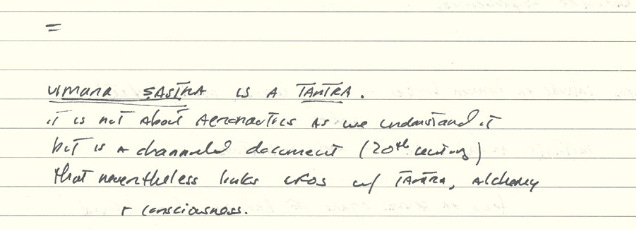 =
VIMANA SASTRA is A TANTRA.
it is not About Aeronautics As we understand it
but is a channeled document (20th century)
that nevertheless links UFOs w/ TANTRA, Alchemy
+ consciousness.